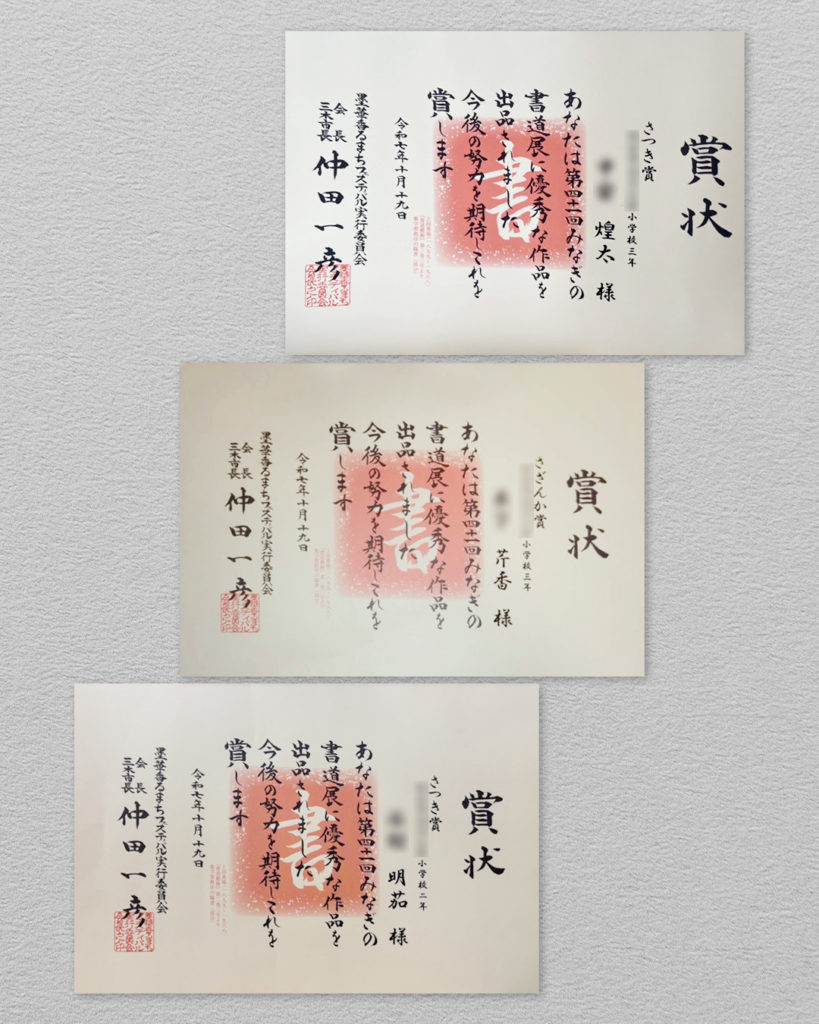 賞状
さつき賞
小学校三年
煌太 様
あなたは第四十二回みなぎの
書道展に優秀な作品を
出品されました
今後の努力を期待しこれを
賞します
令和七年十月十九日
墨華香るまちフェスティバル実行委員会
会長
三木市長
仲田一彦
書
賞状
さざんか賞
小学校三年
芹香 様
あなたは第四十二回みなぎの
書道展に優秀な作品を
出品されました
今後の努力を期待しこれを
賞します
令和七年十月十九日
墨華香るまちフェスティバル実行委員会
会長
三木市長
仲田一彦
書
賞状
さつき賞
小学校二年
明茄 様
あなたは第四十二回みなぎの
書道展に優秀な作品を
出品されました
今後の努力を期待しこれを
賞します
令和七年十月十九日
墨華香るまちフェスティバル実行委員会
会長
三木市長
仲田一彦
書